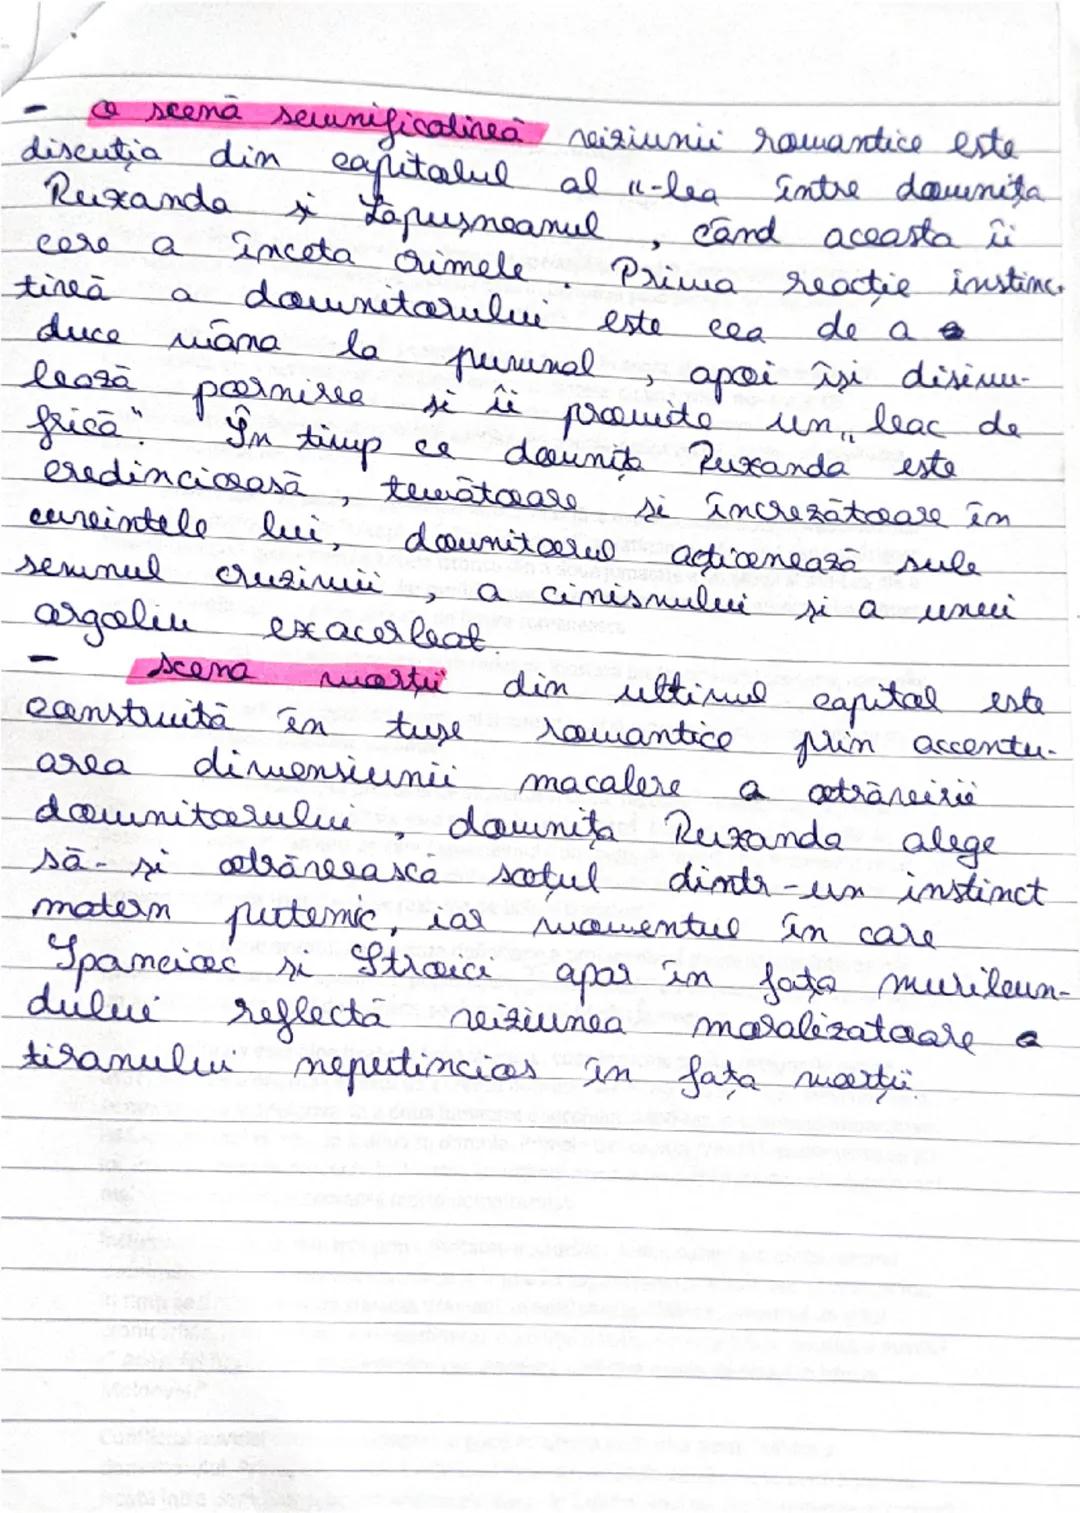 - o scenă semnificativă viziunii romantice este
discuția din capitolul al II-lea între domnița
Ruxanda și Lăpușneanul, când aceasta îi
cere a înceta crimele. Prima reacție instinc-
tivă a domnitorului este cea de a
duce mâna la pumnal, apoi își disimu-
lează pornirea și îi promite un „leac de
frică". În timp ce domnița Ruxanda este
credincioasă, temătoare și încrezătoare în
cuvintele lui, domnitorul acționează sub
semnul cruzimii, a cinismului și a unui
orgoliu exacerbat.
- scena morții din ultimul capitol este
construită în tușe romantice prin accentu-
area dimensiunii macabre a otrăvirii
domnitorului, domnița Ruxanda alege
să își otrăvească soțul dintr-un instinct
matern puternic, iar momentul în care
Spancioc și Stroici apar în fața muribun-
dului reflectă viziunea moralizatoare a
tiranului neputincios în fața morții